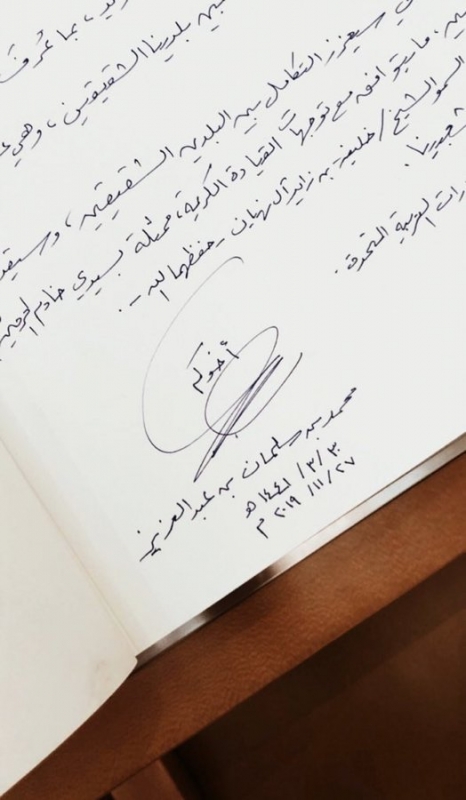 بما عُرف
بين بلدينا الشقيقين، وهي
سيعزز التكامل بين البلدين الشقيقين، وسيقد
ما يتوافق مع توجهات القيادة الكريمة، ممثلة بسيدي خادم الحرمين
السمو الشيخ/ خليفة بن زايد آل نهيان -حفظهما الله-.
شعبينا.
رات العربية المتحدة.
أخوكم
محمد بن سلمان بن عبدالعزيز
٣٠/٣/١٤٤١ هـ
٢٧/١١/٢٠١٩ م